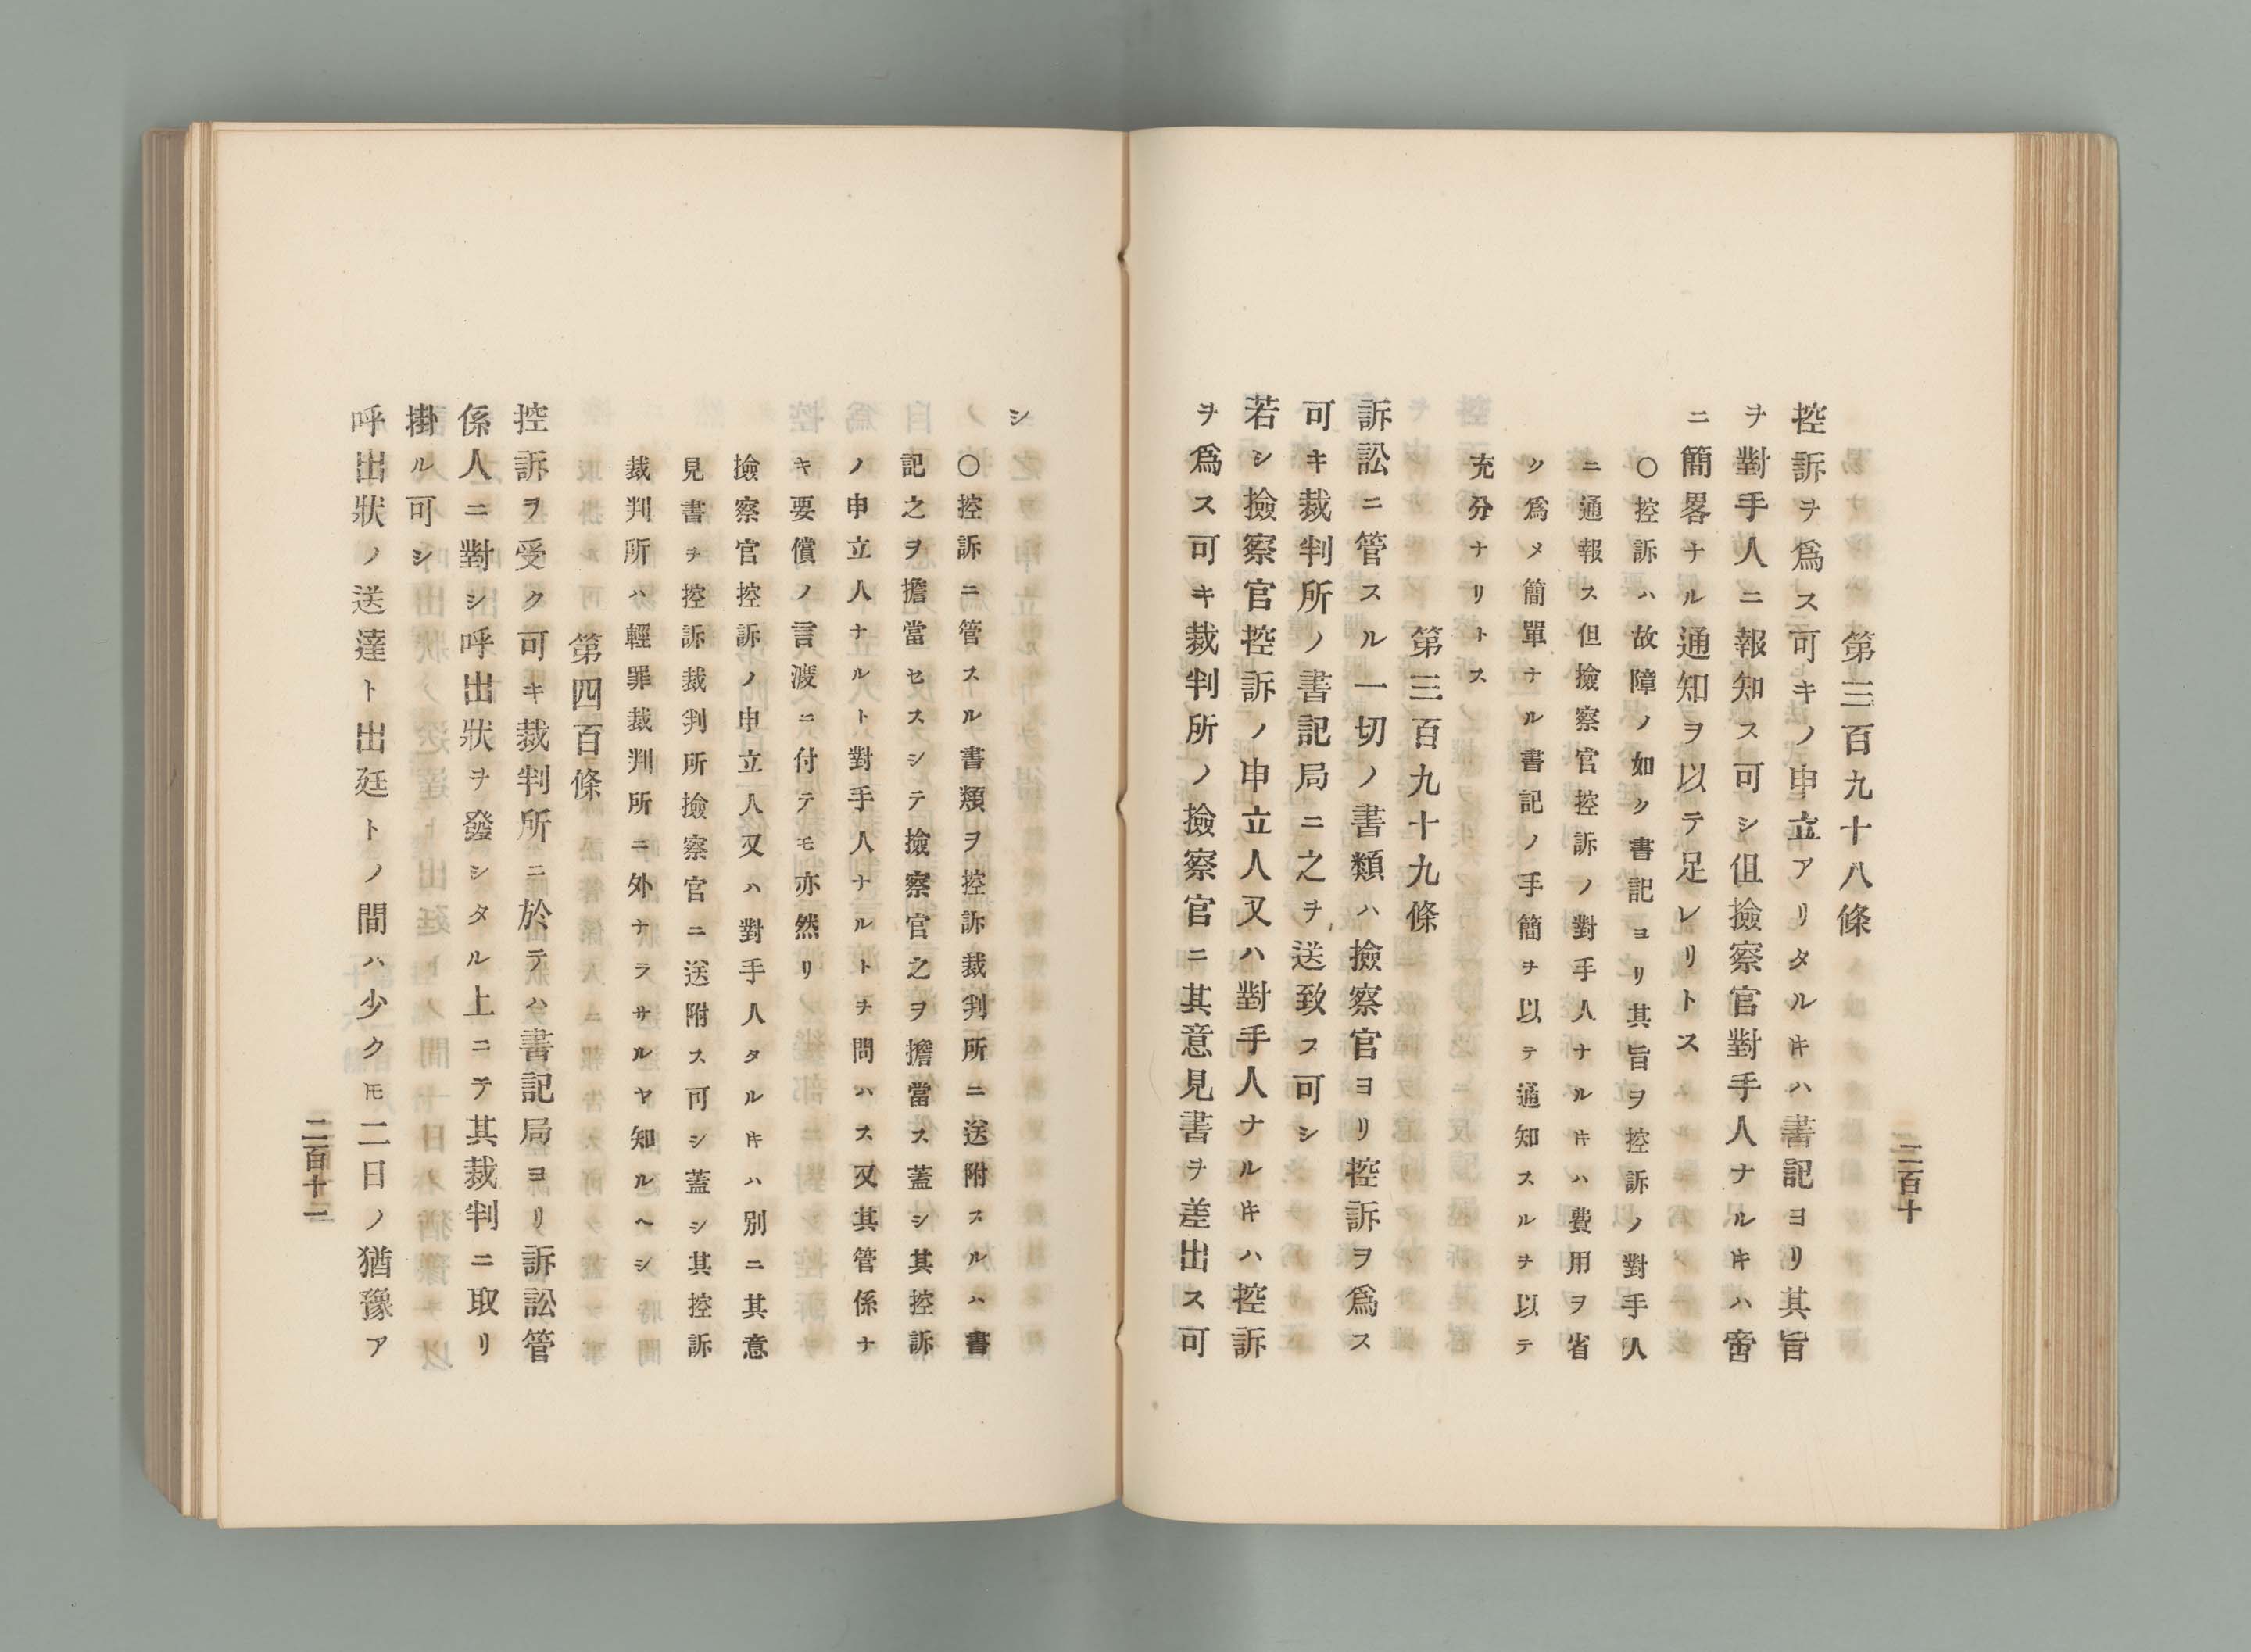 二百十
第三百九十八條
控訴ヲ爲ス可キノ申立アリタルキハ書記ヨリ其旨
ヲ對手人ニ報知ス可シ但撿察官對手人ナルキハ啻
ニ簡畧ナル通知ヲ以テ足レリトス
〇控訴ハ故障ノ如ク書記ヨリ其旨ヲ控訴ノ對手人
ニ通報ス但撿察官控訴ノ對手人ナルキハ費用ヲ省
ク爲メ簡單ナル書記ノ手簡ヲ以テ通知スルヲ以テ
充分ナリトス
第三百九十九條
訴訟ニ管スル一切ノ書類ハ撿察官ヨリ控訴ヲ爲ス
可キ裁判所ノ書記局ニ之ヲ送致ス可シ
若シ撿察官控訴ノ申立人又ハ對手人ナルキハ控訴
ヲ爲ス可キ裁判所ノ撿察官ニ其意見書ヲ差出ス可
シ
〇控訴ニ管スル書類ヲ控訴裁判所ニ送附スルハ書
記之ヲ擔當セスシテ撿察官之ヲ擔當ス蓋シ其控訴
ノ申立人ナルト對手人ナルトヲ問ハス又其管係ナ
キ要償ノ言渡ニ付テモ亦然リ
撿察官控訴ノ申立人又ハ對手人タルキハ別ニ其意
見書ヲ控訴裁判所撿察官ニ送附ス可シ蓋シ其控訴
裁判所ハ輕罪裁判所ニ外ナラサルヤ知ルヘシ
第四百條
控訴ヲ受ク可キ裁判所ニ於テハ書記局ヨリ訴訟管
係人ニ對シ呼出狀ヲ發シタル上ニテ其裁判ニ取リ
掛ル可シ
呼出狀ノ送達ト出廷トノ間ハ少クモ二日ノ猶豫ア
二百十一